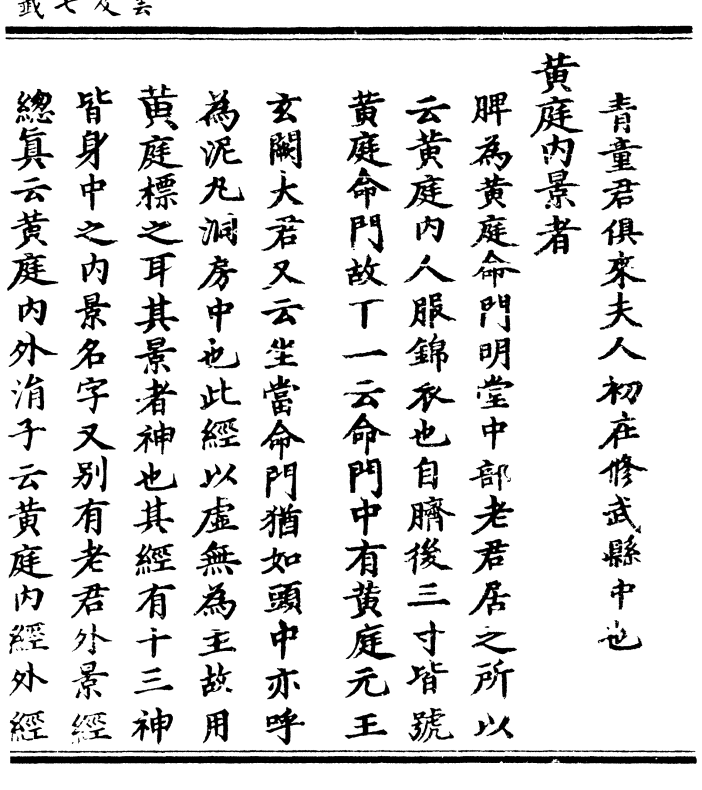 青童君俱來夫人初在修武縣中也
黃庭內景者
脾為黃庭命門明堂中部老君居之所以
云黃庭內人服錦衣也自臍後三寸皆號
黃庭命門故下一云命門中有黃庭元王
玄闕大君又云坐當命門猶如頭中亦呼
為泥丸洞房中也此經以虛無為主故用
黃庭標之耳其景者神也其經有十三神
皆身中之內景名字又別有老君外景經
總真云黃庭內外涓子云黃庭內經外經